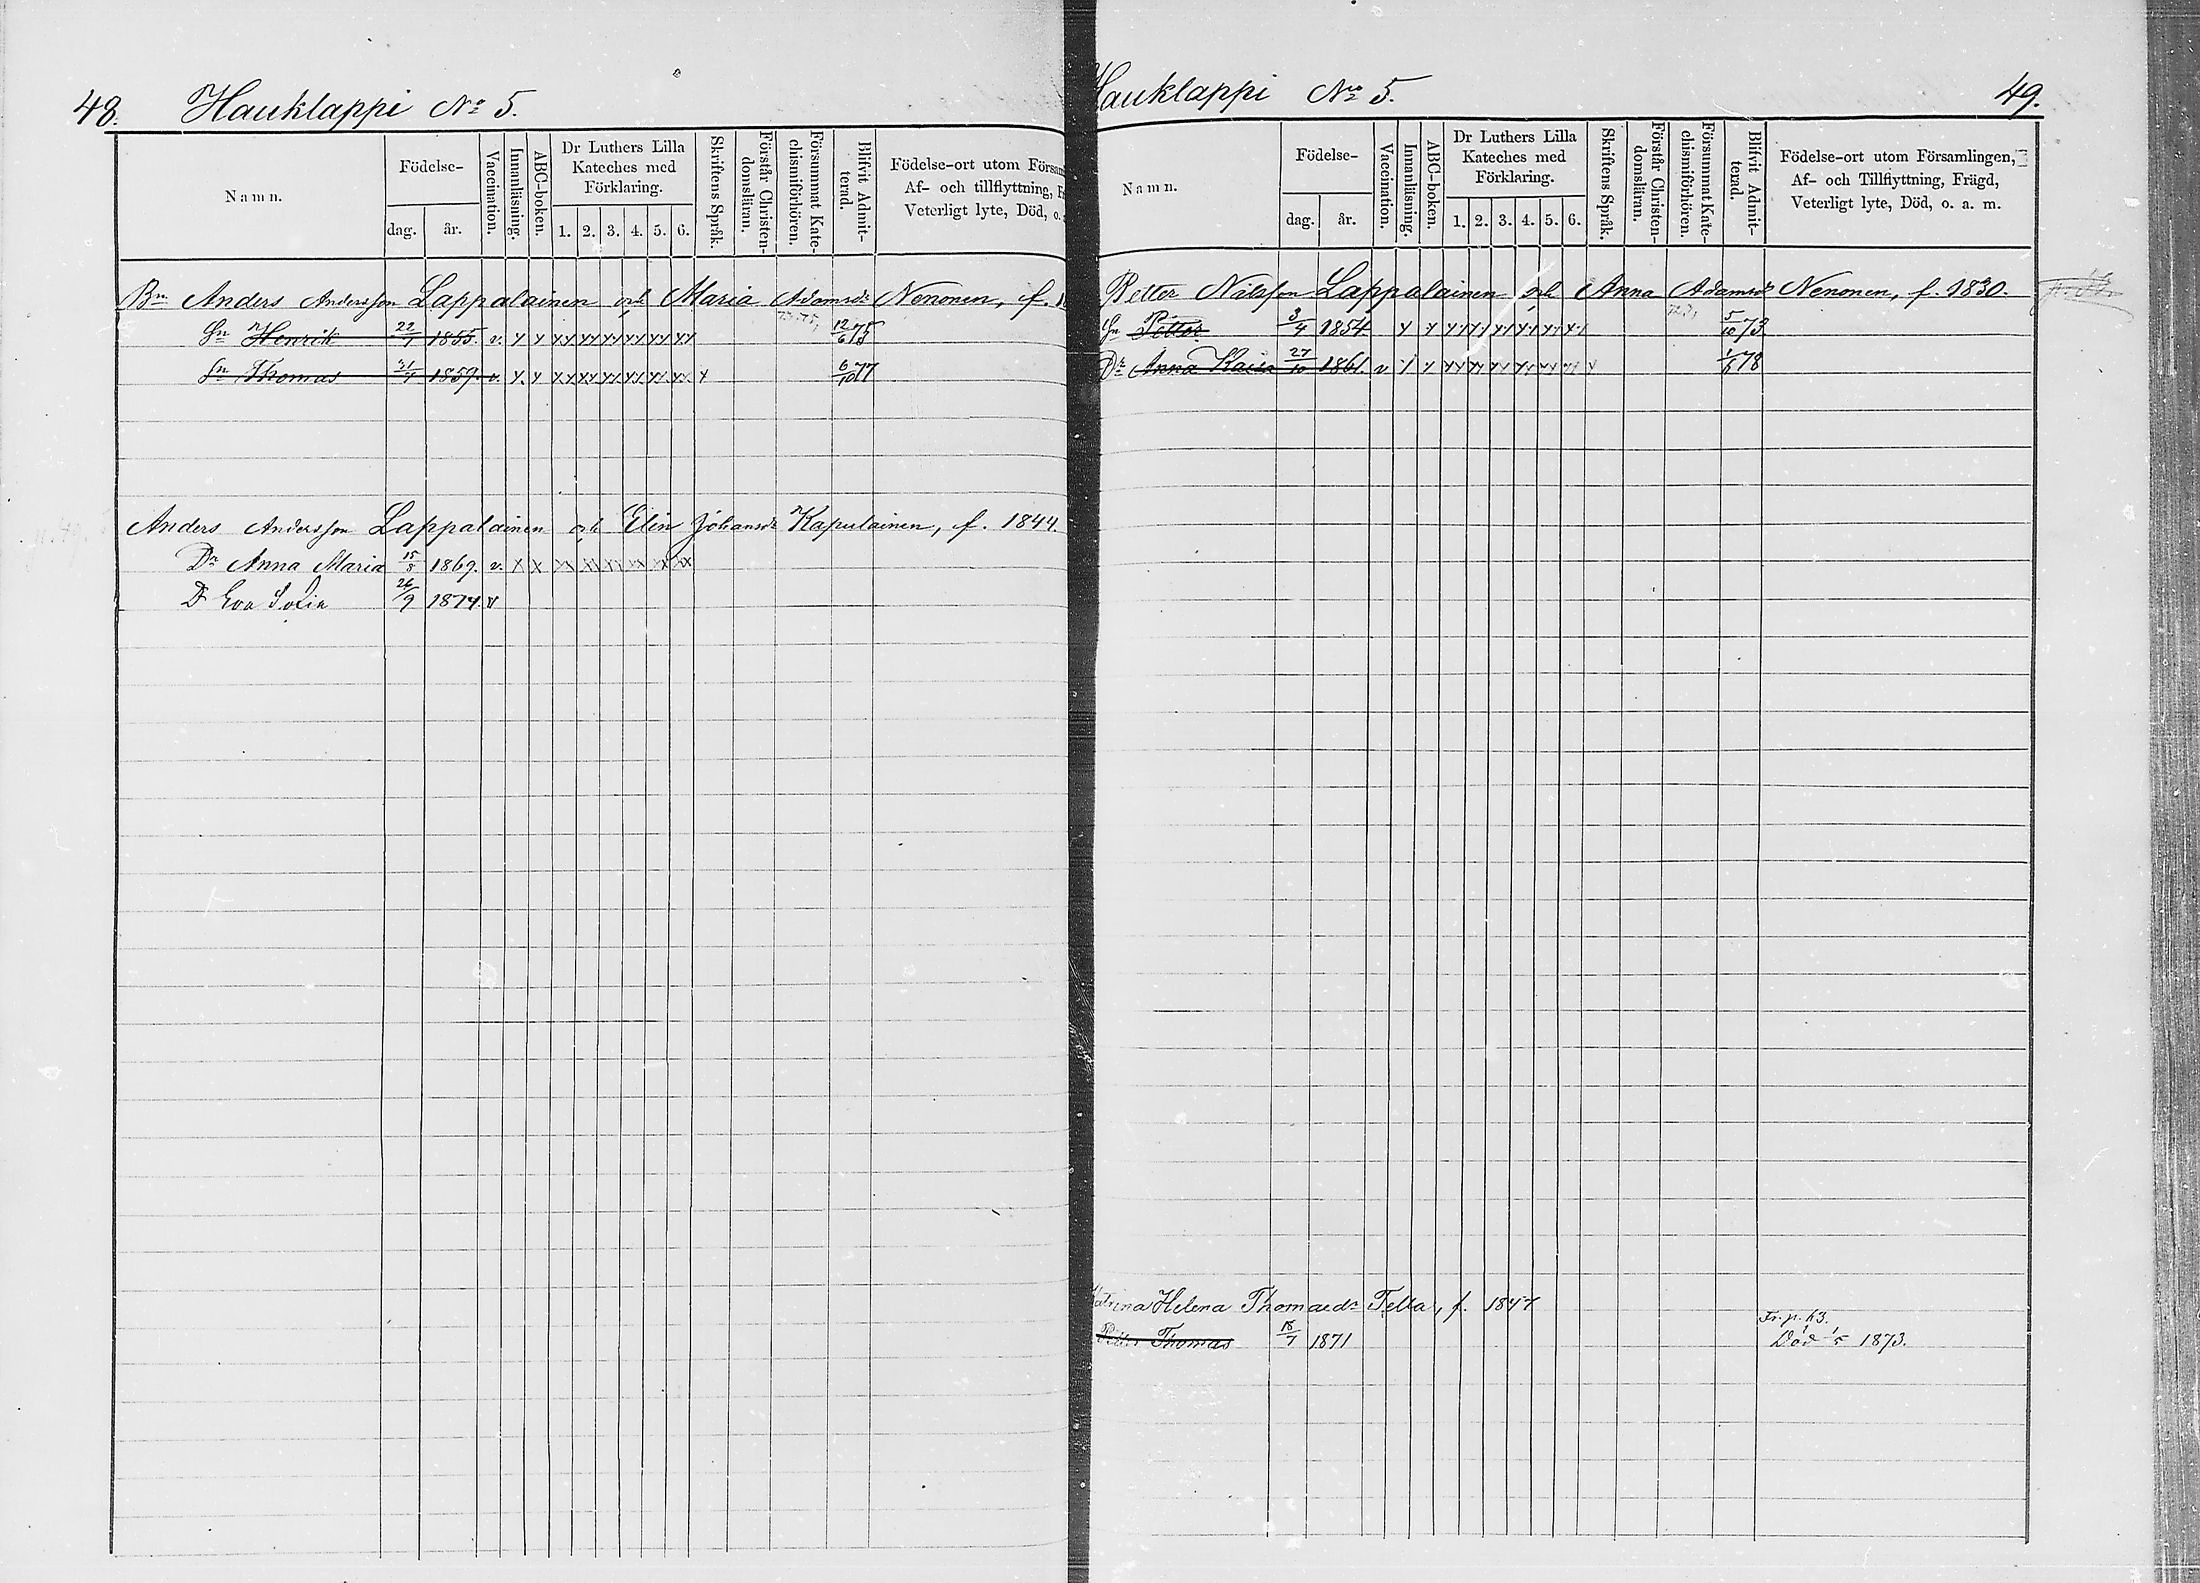 48. Hauklappi No 5.
Namn. Födelse- dag. år. Vaccination. Innanläsning. ABC-boken. Dr Luthers Lilla Kateches med Förklaring. 1. 2. 3. 4. 5. 6. Skriftens Språk. Förstår Christen-domsläran. Försummat Kate-chismiförhören. Blifvit Admit-terad. Födelse-ort utom Försam Af- och tillflyttning, Veterligt lyte, Död, o.
Bn Anders Andersson Lappalainen och Maria Adamsdr Nenonen, f.
Sn Henrik 22/1 1855. v. 12/6 75
Sn Thomas 1859. v. 6/10 77
Anders Andersson Lappalainen och Elin Johansdr Kapulainen, f. 1844.
Dr Anna Maria 15/8 1869. v.
Dr Eva Sofia 26/9 1874. v
Hauklappi No 5. 49.
Namn. Födelse- dag. år. Vaccination. Innanläsning. ABC-boken. Dr Luthers Lilla Kateches med Förklaring. 1. 2. 3. 4. 5. 6. Skriftens Språk. Förstår Christen-domsläran. Försummat Kate-chismiförhören. Blifvit Admit-terad. Födelse-ort utom Församlingen, Af- och Tillflyttning, Frägd, Veterligt lyte, Död, o. a. m.
Petter Nilsson Lappalainen och Anna Adamsdr Nenonen, f. 1830.
Sn Petter 3/4 1854 5/10 73
Dr Anna Kaisa 27/10 1861. v 1/6 78
Katrina Helena Thomaedr Tella, f. 1847
Fr. p. 63.
Petter Thomas 18/7 1871 Död 1/5 1873.